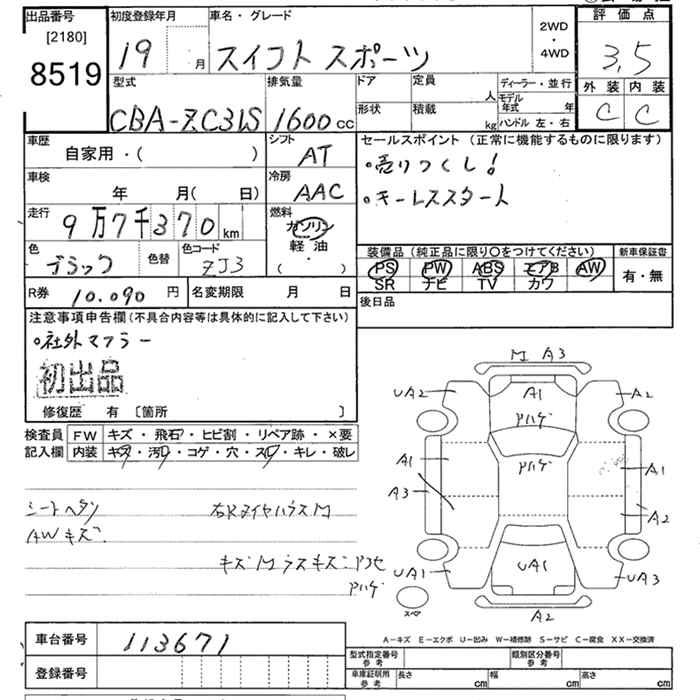 出品番号
[2180]
8519
初度登録年月
19 月
車名・グレード
スイフト スポーツ
2WD
・
4WD
評価点
3.5
外装 内装
C C
型式
CBA-ZC31S
排気量
1600 cc
ドア 定員 人
形状 積載 kg
ディーラー・並行
モデル年式 年
ハンドル 左・右
車歴
自家用・( )
シフト
AT
セールスポイント (正常に機能するものに限ります)
・売りつくし!
・キーレススタート
車検
年 月( 日)
冷房
AAC
走行
9万7千370 km
燃料
ガソリン
軽油
( ・ )
色
ブラック
色替
色コード
ZJ3
装備品 (純正品に限り○をつけてください)
PS PW ABS エアB AW
SR ナビ TV カワ
新車保証書
有・無
R券 10.090 円
名変期限 月 日
後日品
注意事項申告欄(不具合内容等は具体的に記入して下さい)
・社外マフラー
初出品
修復歴 有 〔箇所 〕
検査員
記入欄
FW キズ・飛石・ヒビ割・リペア跡・×要
内装 キズ・汚レ・コゲ・穴・スレ・キレ・破レ
シートヘタリ 右Rタイヤハウス M
AWキズ
M A3
UA2 A1 A2
ハゲ
ハゲ
A1 A1
A3 A2
UA1 UA1 UA3
スペア
A2
A-キズ E-エクボ U-凹み W-補修跡 S-サビ C-腐食 XX-交換済
車台番号 113671
登録番号
型式指定番号
参考
類別区分番号
参考
車庫証明用
参考
長さ cm 幅 cm 高さ cm